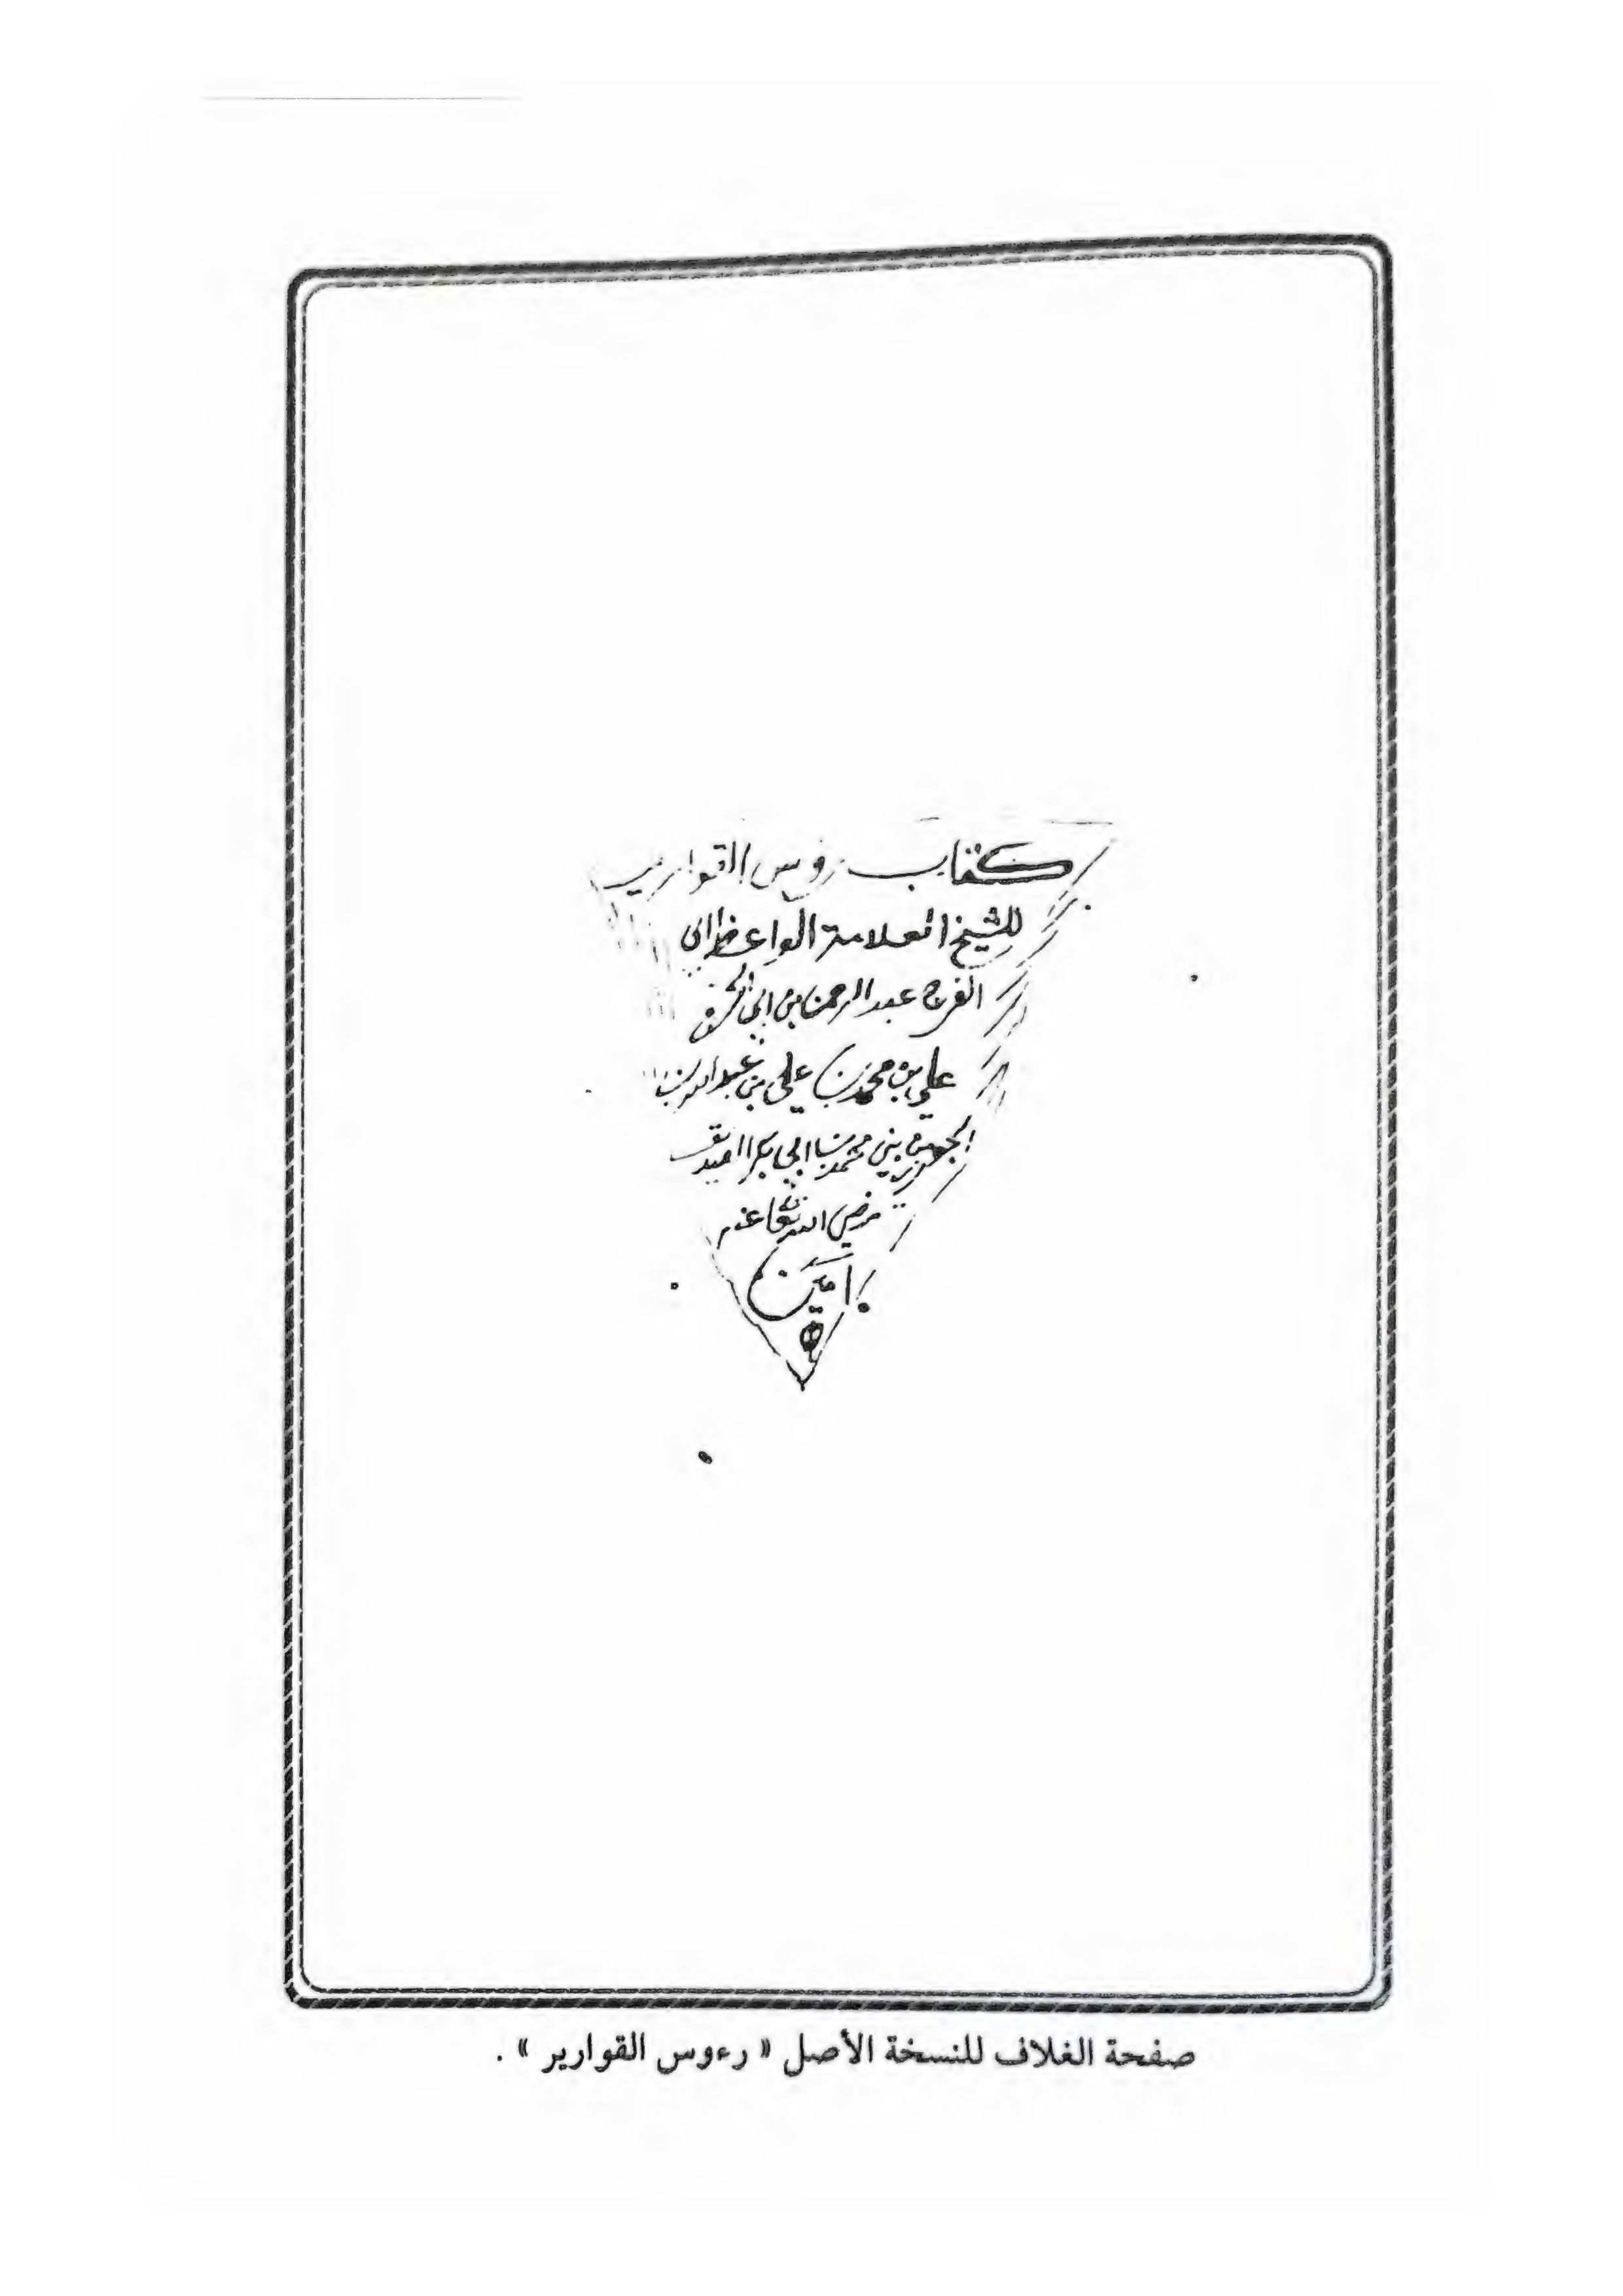 كتاب روس القوارير
للشيخ العلامة الواعظ ابى
الفرج عبد الرحمن بن ابى
على بن محمد بن على بن عبد الله بن
الجوزى بن محمد بن ابى بكر الصديق
رضى الله تعا عنه
امين
صفحة الغلاف للنسخة الأصل « رءوس القوارير » .